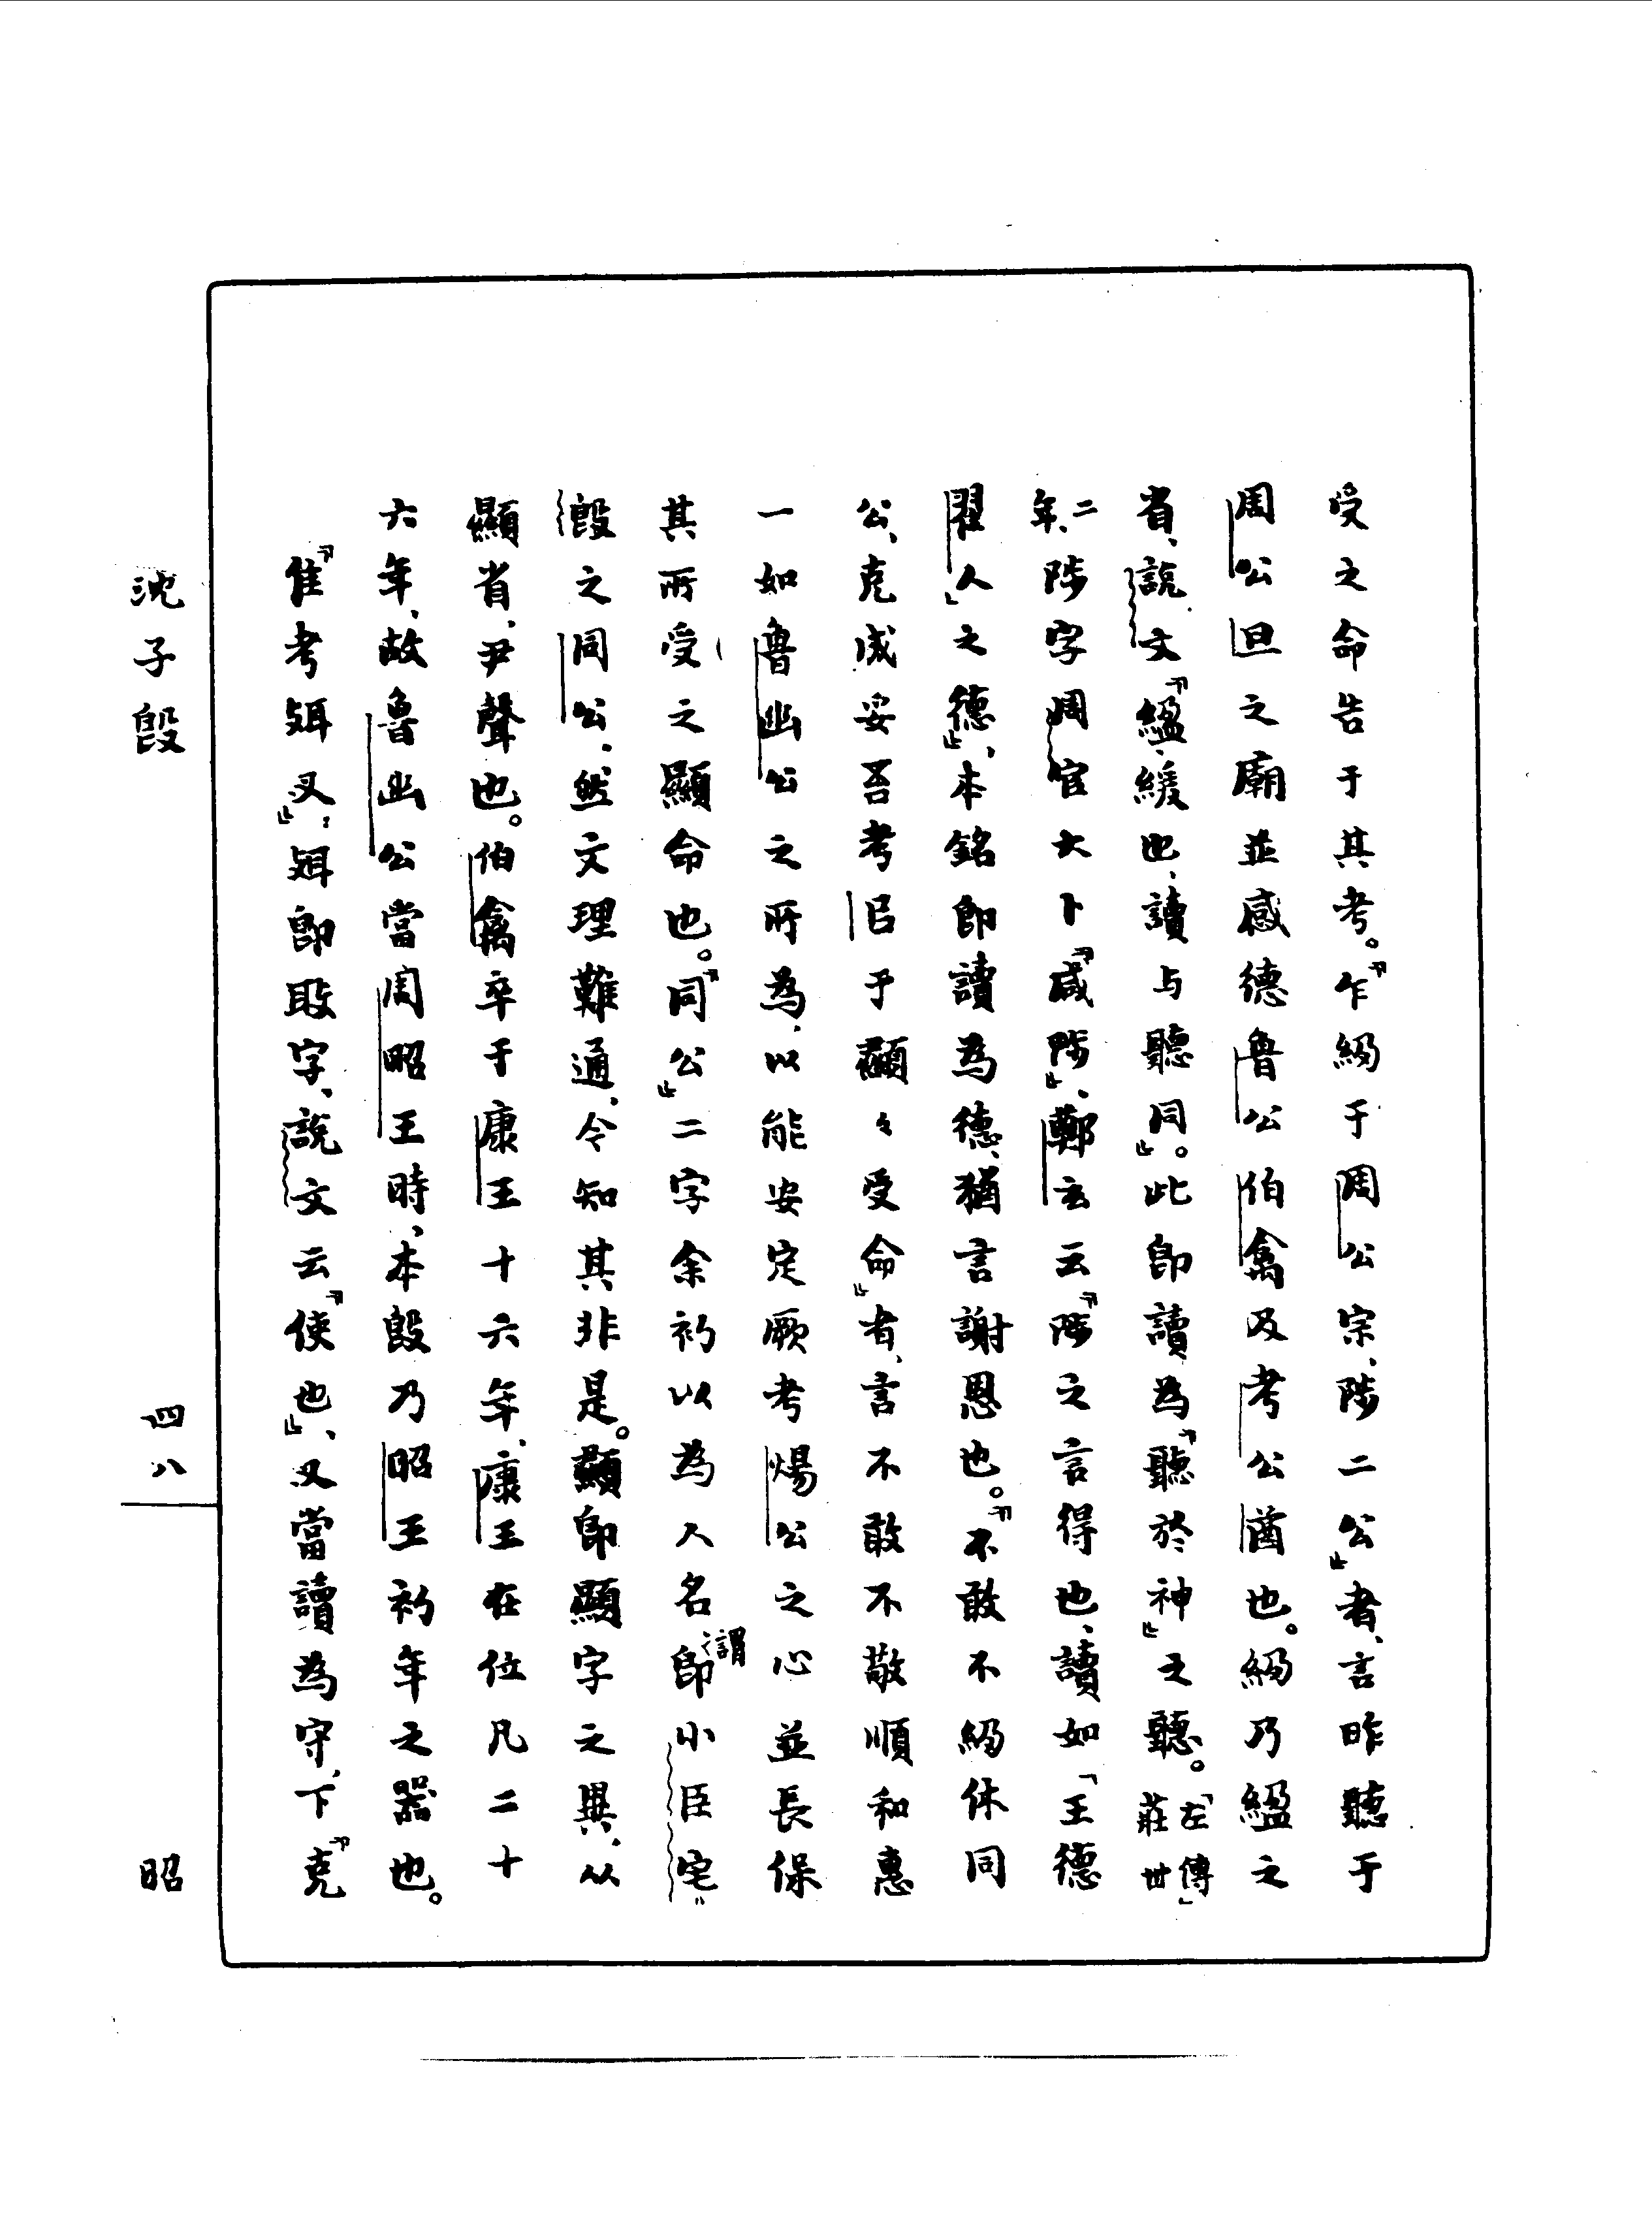 受之命告于其考。『乍緆于周公宗、陟二公』者、言昨聽于
周公旦之廟並感德魯公伯禽及考公酋也。緆乃縕之
省、說文『縕、緩也、讀与聽同』。此即讀為『聽於神』之聽。「左傳」莊卅
二年、陟字周官大卜『咸陟』、鄭玄云『陟之言得也、讀如「王德
翟人」之德』、本銘即讀為德、猶言謝恩也。『不敢不緆休同
公、克成妥吾考㠯于顯々受命』者、言不敢不敬順和惠
一如魯幽公之所為、以能安定厥考煬公之心並長保
其所受之顯命也。『同公』二字余初以為人名謂即小臣宅
𣪘之同公、然文理難通、今知其非是。顯即顯字之異、从
顯省、尹聲也。伯禽卒于康王十六年、康王在位凡二十
六年、故魯幽公當周昭王時、本𣪘乃昭王初年之器也。
『隹考㕯又』：㕯即取字、說文云『使也』、又當讀為守、下『克
沈子𣪘
四八
昭